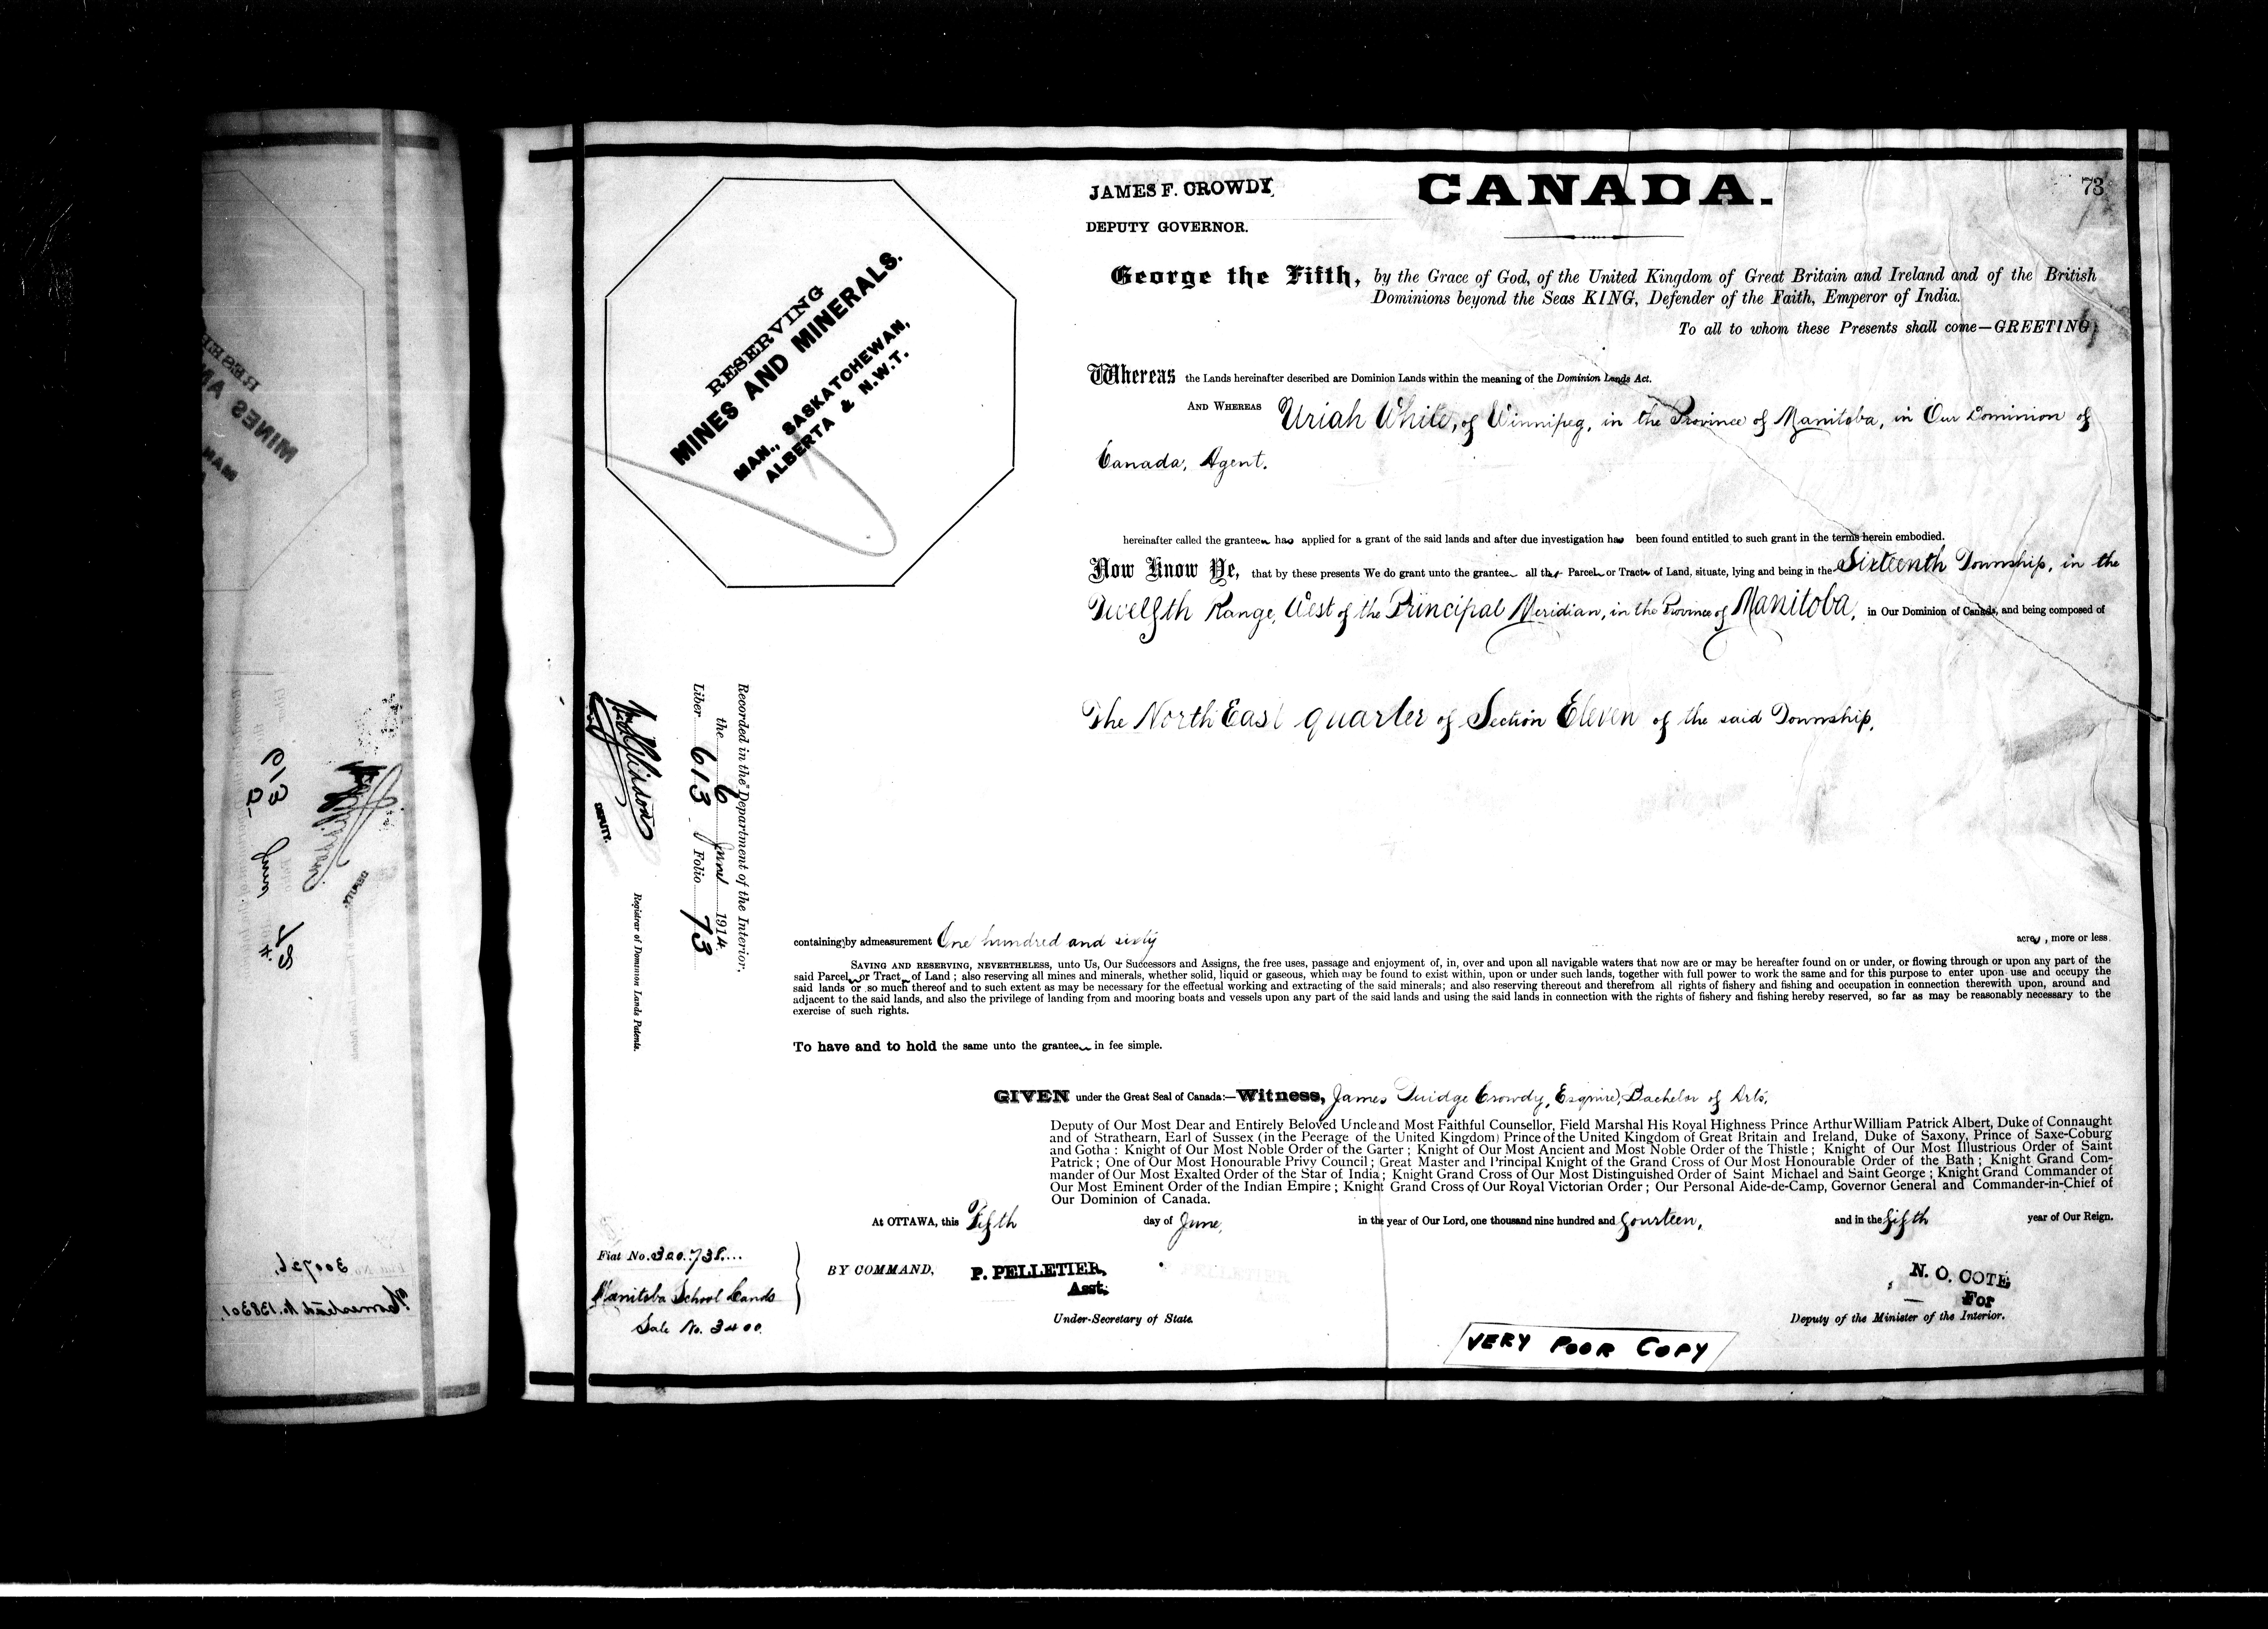 JAMES F. CROWDY,
CANADA.
73
DEPUTY GOVERNOR.
George the Fifth, by the Grace of God, of the United Kingdom of Great Britain and Ireland and of the British
Dominions beyond the Seas KING, Defender of the Faith, Emperor of India.
To all to whom these Presents shall come—GREETING
RESERVING
MINES AND MINERALS.
MAN., SASKATCHEWAN,
ALBERTA & N.W.T.
Whereas the Lands hereinafter described are Dominion Lands within the meaning of the Dominion Lands Act.
AND WHEREAS Uriah White, of Winnipeg, in the Province of Manitoba, in Our Dominion of
Canada, Agent.
hereinafter called the grantee has applied for a grant of the said lands and after due investigation has been found entitled to such grant in the terms herein embodied.
Now Know Ye, that by these presents We do grant unto the grantee all that Parcel or Tract of Land, situate, lying and being in the Sixteenth Township, in the
Twelfth Range, West of the Principal Meridian, in the Province of Manitoba, in Our Dominion of Canada, and being composed of
The North East quarter of Section Eleven of the said Township,
Recorded in the Department of the Interior,
the 6 June 1914
Liber 613 Folio 73
DEPUTY.
Registrar of Dominion Lands Patents.
containing by admeasurement One hundred and sixty acres, more or less.
SAVING AND RESERVING, NEVERTHELESS, unto Us, Our Successors and Assigns, the free uses, passage and enjoyment of, in, over and upon all navigable waters that now are or may be hereafter found on or under, or flowing through or upon any part of the
said Parcel or Tract of Land; also reserving all mines and minerals, whether solid, liquid or gaseous, which may be found to exist within, upon or under such lands, together with full power to work the same and for this purpose to enter upon use and occupy the
said lands or so much thereof and to such extent as may be necessary for the effectual working and extracting of the said minerals; and also reserving thereout and therefrom all rights of fishery and fishing and occupation in connection therewith upon, around and
adjacent to the said lands, and also the privilege of landing from and mooring boats and vessels upon any part of the said lands and using the said lands in connection with the rights of fishery and fishing hereby reserved, so far as may be reasonably necessary to the
exercise of such rights.
To have and to hold the same unto the grantee in fee simple.
GIVEN under the Great Seal of Canada:—Witness, James Fuidge Crowdy, Esquire, Bachelor of Arts,
Deputy of Our Most Dear and Entirely Beloved Uncle and Most Faithful Counsellor, Field Marshal His Royal Highness Prince Arthur William Patrick Albert, Duke of Connaught
and of Strathearn, Earl of Sussex (in the Peerage of the United Kingdom) Prince of the United Kingdom of Great Britain and Ireland, Duke of Saxony, Prince of Saxe-Coburg
and Gotha: Knight of Our Most Noble Order of the Garter; Knight of Our Most Ancient and Most Noble Order of the Thistle; Knight of Our Most Illustrious Order of Saint
Patrick; One of Our Most Honourable Privy Council; Great Master and Principal Knight of the Grand Cross of Our Most Honourable Order of the Bath; Knight Grand Com-
mander of Our Most Exalted Order of the Star of India; Knight Grand Cross of Our Most Distinguished Order of Saint Michael and Saint George; Knight Grand Commander of
Our Most Eminent Order of the Indian Empire; Knight Grand Cross of Our Royal Victorian Order; Our Personal Aide-de-Camp, Governor General and Commander-in-Chief of
Our Dominion of Canada.
At OTTAWA, this Fifth day of June, in the year of Our Lord, one thousand nine hundred and fourteen, and in the fifth year of Our Reign.
Fiat No. 300738
Manitoba School Lands
Sale No. 3400.
BY COMMAND,
P. PELLETIER,
Asst.
Under-Secretary of State.
N. O. COTE
For
Deputy of the Minister of the Interior.
VERY POOR COPY